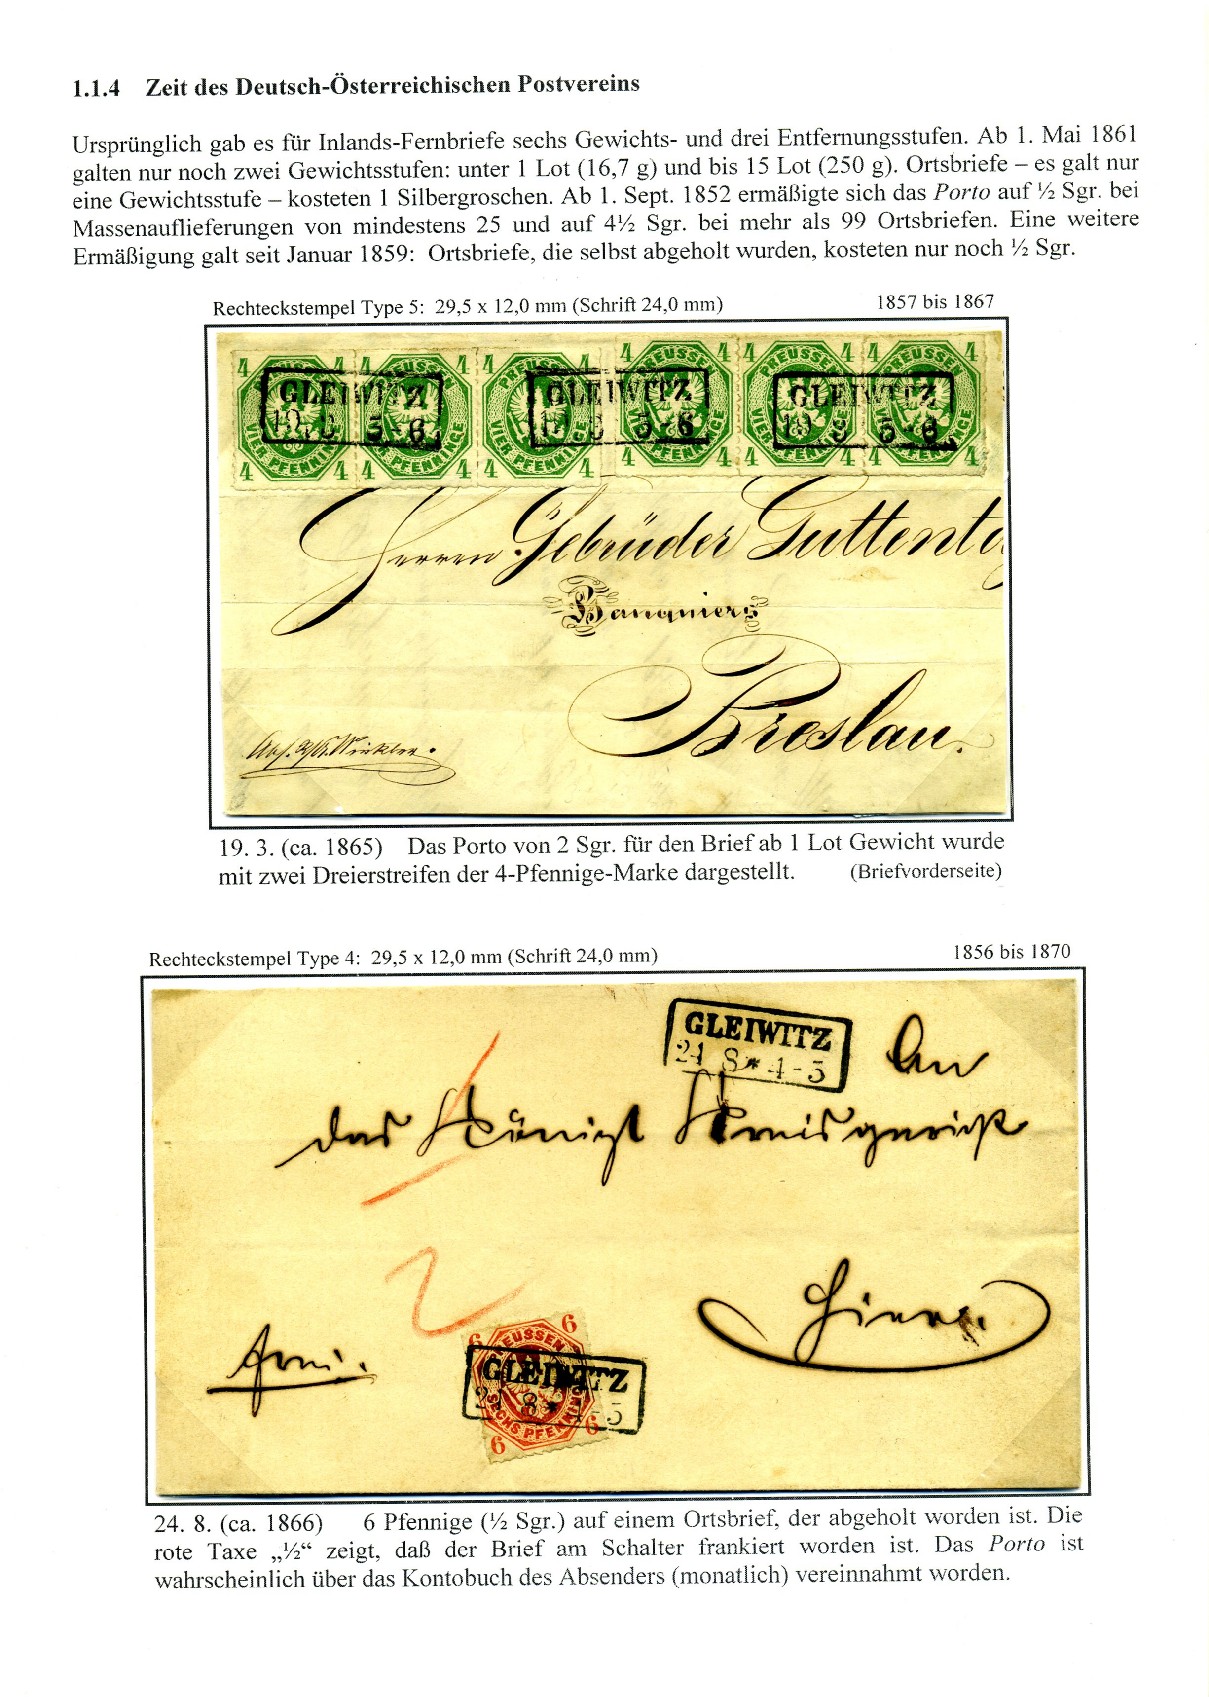 1.1.4 Zeit des Deutsch-Österreichischen Postvereins
Ursprünglich gab es für Inlands-Fernbriefe sechs Gewichts- und drei Entfernungsstufen. Ab 1. Mai 1861
galten nur noch zwei Gewichtsstufen: unter 1 Lot (16,7 g) und bis 15 Lot (250 g). Ortsbriefe – es galt nur
eine Gewichtsstufe – kosteten 1 Silbergroschen. Ab 1. Sept. 1852 ermäßigte sich das Porto auf ½ Sgr. bei
Massenauflieferungen von mindestens 25 und auf 4½ Sgr. bei mehr als 99 Ortsbriefen. Eine weitere
Ermäßigung galt seit Januar 1859: Ortsbriefe, die selbst abgeholt wurden, kosteten nur noch ½ Sgr.
Rechteckstempel Type 5: 29,5 x 12,0 mm (Schrift 24,0 mm) 1857 bis 1867
4 4 4 4 4 4 4 4 4
PREUSSEN PREUSSEN PREUSSEN PREUSSEN
GLEIWITZ GLEIWITZ GLEIWITZ
19 5-6 19 5-6 19 3 5-6
VIER PFENNINGE VIER PFENNINGE VIER PFENNINGE VIER PFENNINGE
4 4 4 4 4 4 4 4 4
Herren Gebrüder Guttenta
Banquiers
Breslau.
Abs. Winkler.
19. 3. (ca. 1865) Das Porto von 2 Sgr. für den Brief ab 1 Lot Gewicht wurde
mit zwei Dreierstreifen der 4-Pfennige-Marke dargestellt. (Briefvorderseite)
Rechteckstempel Type 4: 29,5 x 12,0 mm (Schrift 24,0 mm) 1856 bis 1870
GLEIWITZ
24 8 * 4-5
An
das Königl Kreisgericht
1/2
Hier.
frei.
6 PREUSSEN 6
GLEIWITZ
8 * -5
SECHS PFENNINGE
6 6
24. 8. (ca. 1866) 6 Pfennige (½ Sgr.) auf einem Ortsbrief, der abgeholt worden ist. Die
rote Taxe „½“ zeigt, daß der Brief am Schalter frankiert worden ist. Das Porto ist
wahrscheinlich über das Kontobuch des Absenders (monatlich) vereinnahmt worden.